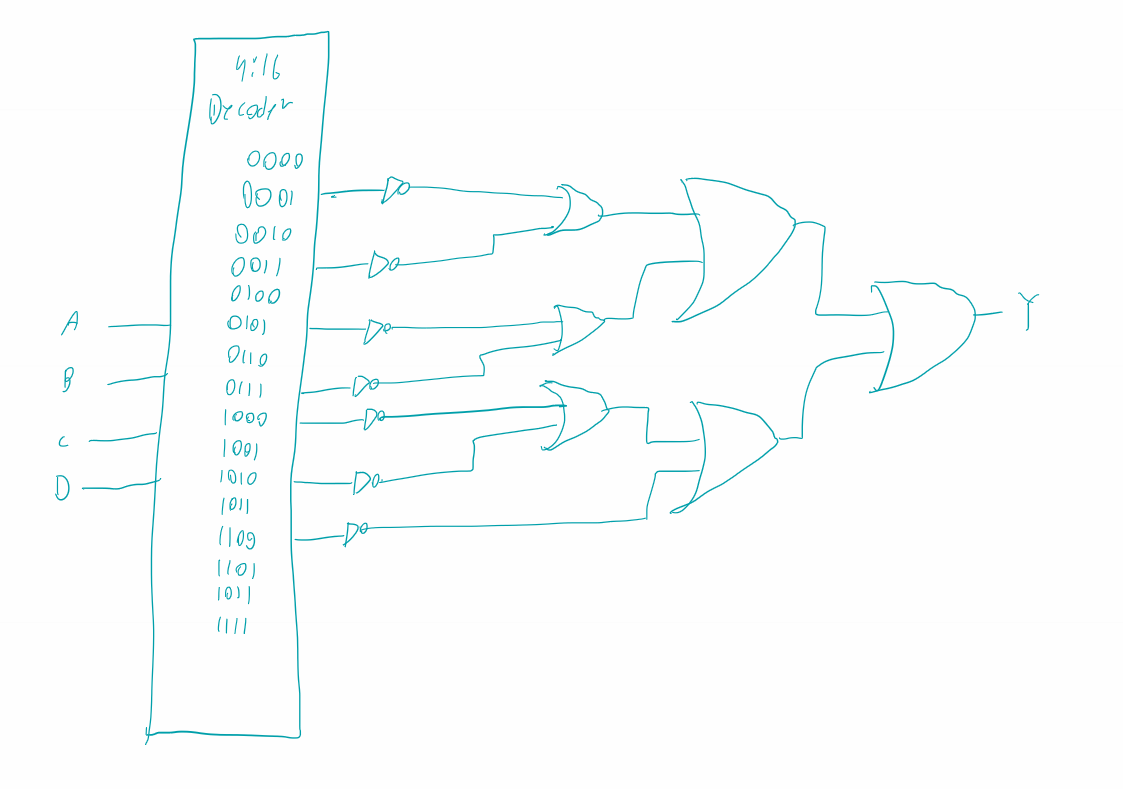 4:16
Decoder
0000
0001
0010
0011
0100
0101
0110
0111
1000
1001
1010
1011
1100
1101
1011
1111
A
B
C
D
Y